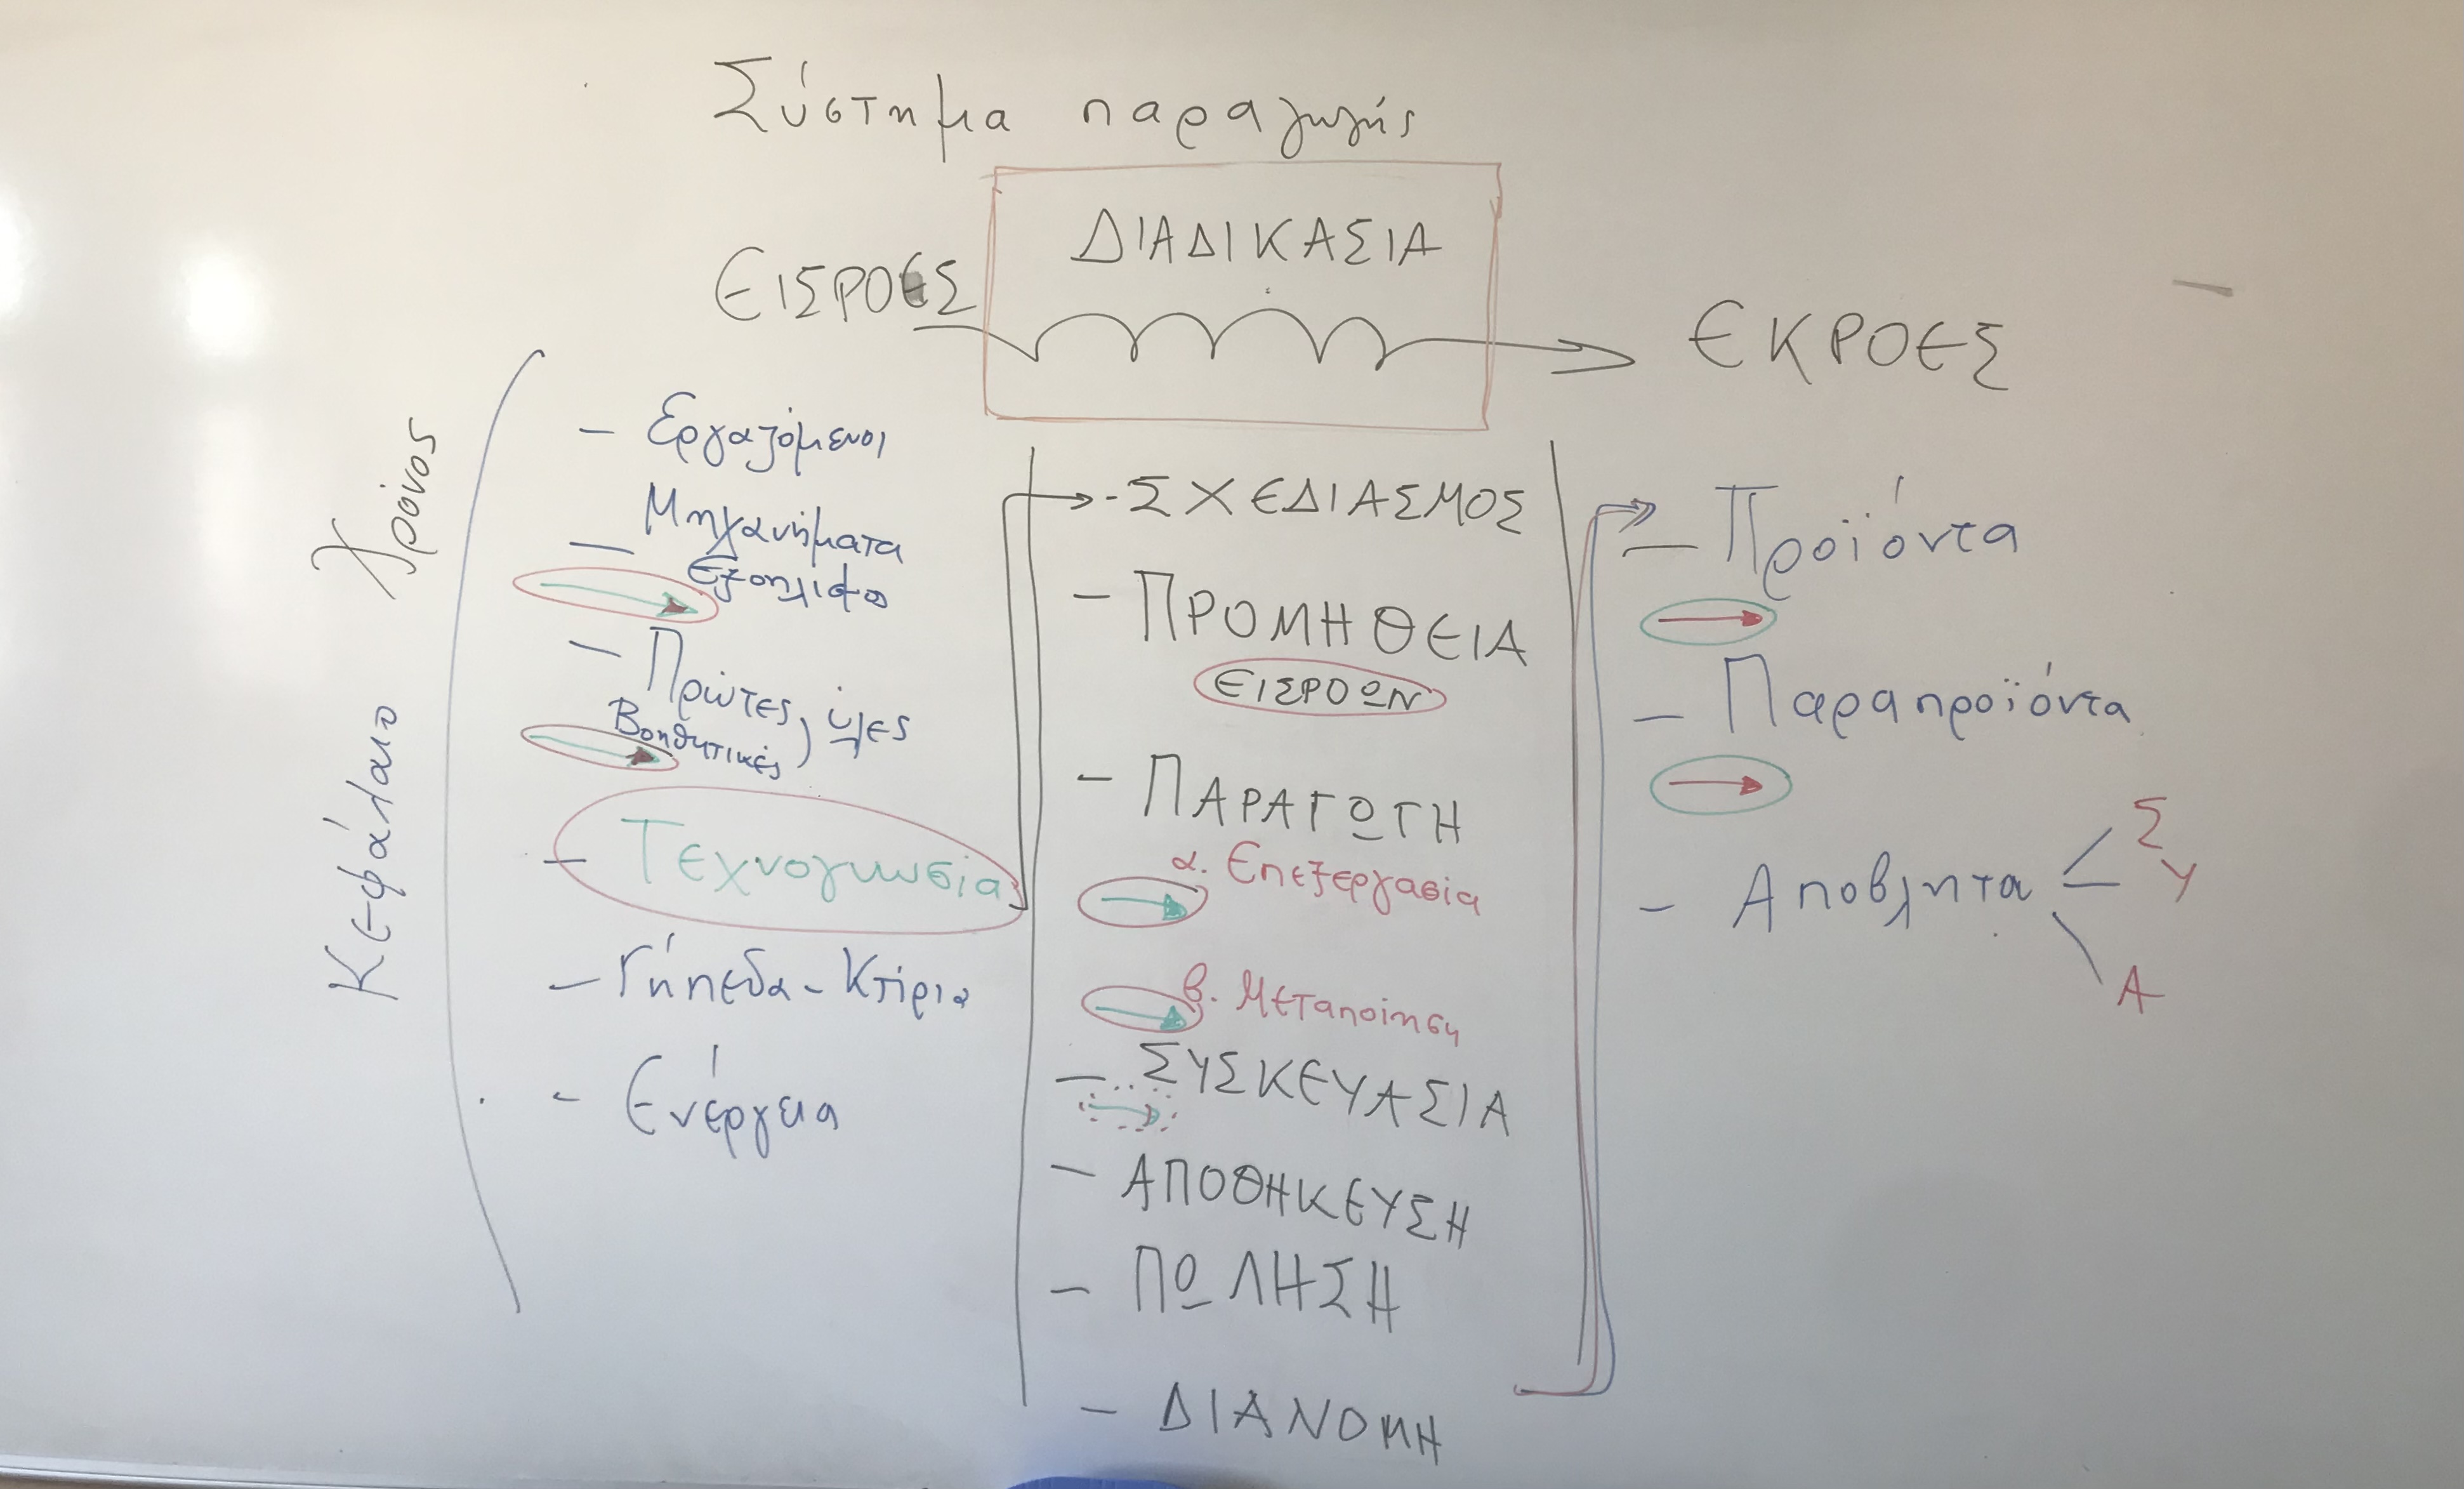 Σύστημα παραγωγής
ΔΙΑΔΙΚΑΣΙΑ
ΕΙΣΡΟΕΣ
ΕΚΡΟΕΣ
Χρόνος
Κεφάλαιο
- Εργαζόμενοι
- Μηχανήματα
- Πρώτες, ύλες
Βοηθητικές)
- Τεχνογνωσία
- Γήπεδα - Κτίρια
- Ενέργεια
- ΣΧΕΔΙΑΣΜΟΣ
- ΠΡΟΜΗΘΕΙΑ
ΕΙΣΡΟΩΝ
- ΠΑΡΑΓΩΓΗ
α. Επεξεργασία
β. Μεταποίηση
- ΣΥΣΚΕΥΑΣΙΑ
- ΑΠΟΘΗΚΕΥΣΗ
- ΠΩΛΗΣΗ
- ΔΙΑΝΟΜΗ
- Προϊόντα
- Παραπροϊόντα
- Απόβλητα
Σ
Υ
Α